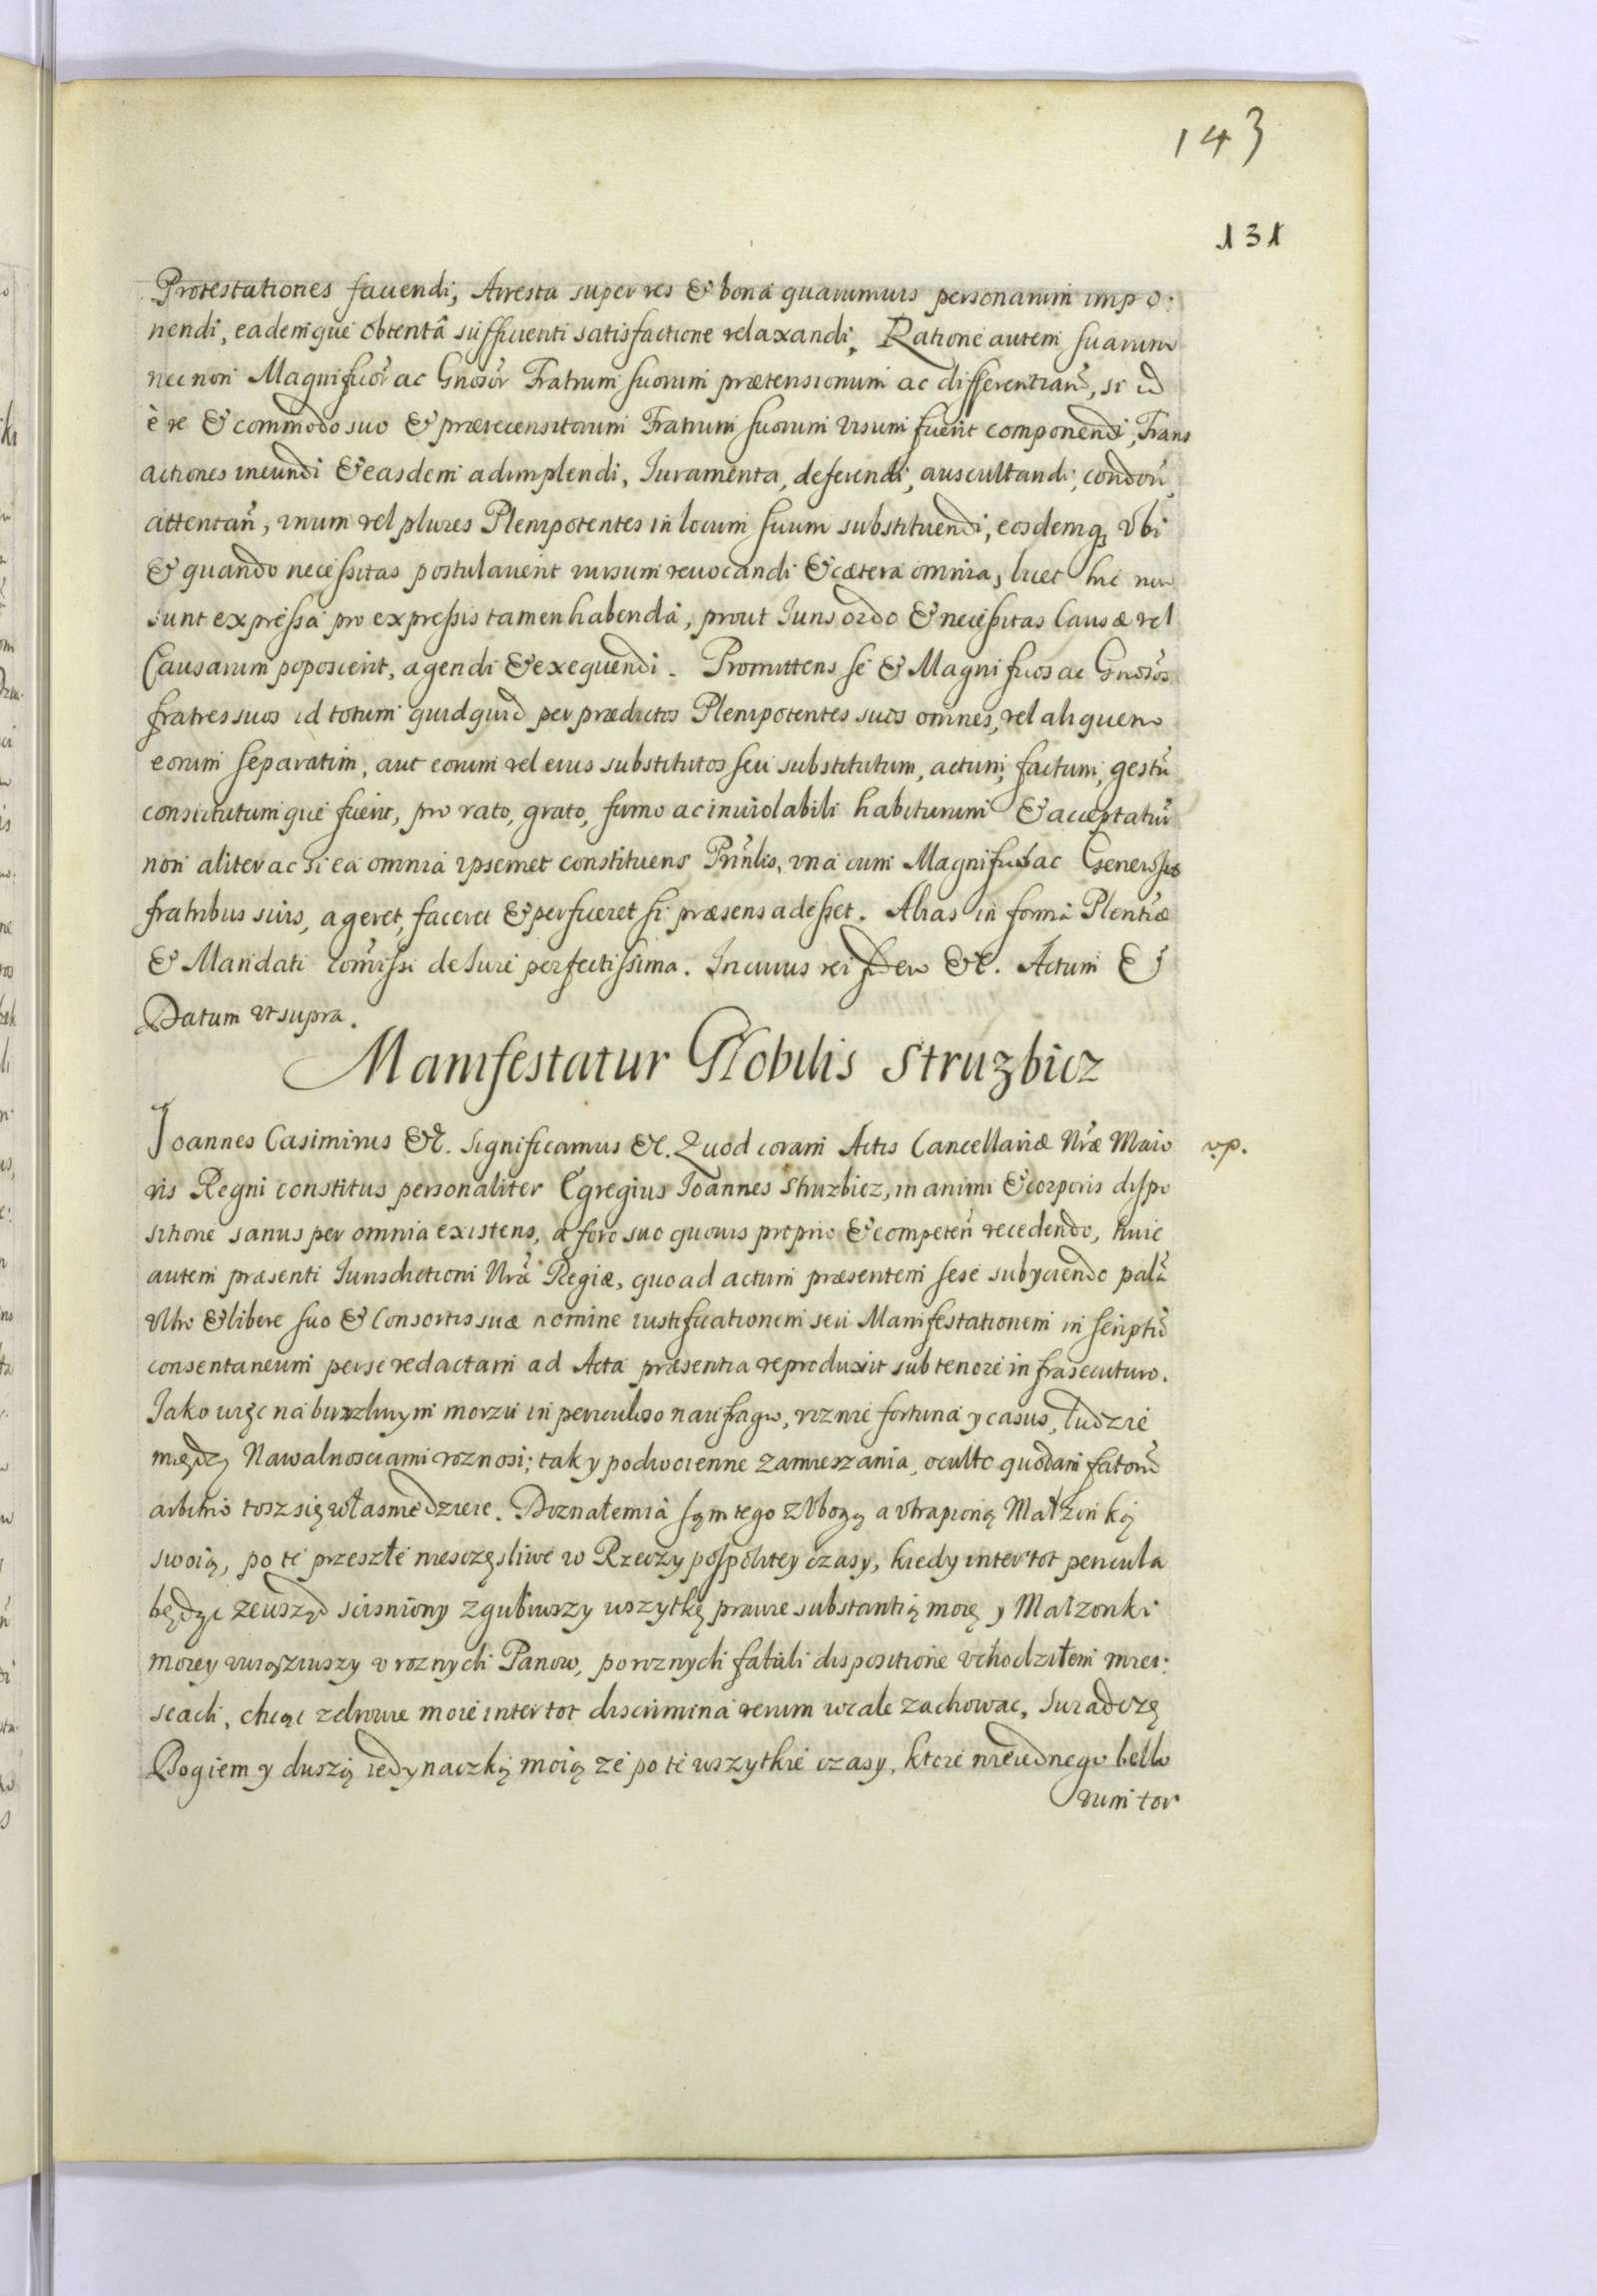 143
131
Protestationes faciendi, Arresta super res & bona quarumuis personarum impo:
nendi, eademque obtentâ sufficienti satisfactione relaxandi, Ratione autem suarum
necnon Magnificor̃ ac Gnosor̃ Fratrum suorum prætensionum ac differentiarũ, si id
è re & commodo suo & prærecensitorum Fratrum suorum visum fuerit componendi, Trans
actiones ineundi & easdem adimplendi, Iuramenta, deferendi, auscultandi, condoñ,
attentañ, vnum vel plures Plenipotentes in locum suum substituendi, eosdemq₃ vbi
& quando necessitas postulauerit rursum reuocandi & cætera omnia, licet hic non
sunt expressa pro expressis tamen habenda, prout Iuris ordo & necessitas Causæ vel
Causarum poposcerit, agendi & exequendi. Promittens se & Magnificos ac Gnosos
fratres suos id totum quidquid per prædictos Plenipotentes suos omnes, vel aliquem
eorum separatim, aut eorum vel eius substitutos seu substitutum, actum, factum, gestũ
constitutumque fuerit, pro rato, grato, firmo ac inuiolabili habiturum & acceptatur̃
non aliter ac si ea omnia ipsemet constituens Prñlis, vna cum Magnificis ac Generosis
fratribus suis, ageret, faceret & perficeret si præsens adesset. Alias in forma Plentiæ
& Mandati com̃issi de Iure perfectissima. In cuius rei fidem &c. Actum &
Datum vt supra.
Manifestatur Nobilis Struzbicz
Ioannes Casimirus &c. significamus &c. Quod coram Actis Cancellariæ Nr̃æ Maio v.p.
ris Regni constitus personaliter Egregius Ioannes Struzbicz, in animi & corporis dispo
sitione sanus per omnia existens, a foro suo quouis proprio & competeñ recedendo, huic
autem præsenti Iurisdictioni Nr̃æ Regiæ, quo ad actum præsentem sese subyciendo palã
vltro & libere suo & Consortis suæ nomine iustificationem seu Manifestationem in scriptũ
consentaneum per se redactam ad Acta præsentia reproduxit sub tenore infrasecuturo.
Jako więc na burzliwym morzu in periculoso naufragio, rżnie fortuna y casus, ludzie
między Nawalnosciami roznosi; tak y podwoienne zamieszania, oculto quodam fatorũ
arbitrio tosz się własnie dzieie. Doznałem ia sąm tego z Vbogą a vtrapioną Małzonką
swoią, po te przeszłe niesczęsliwe w Rzeczypospolitey czasy, kiedy inter tot pericula
będąc zewsząd scisniony zgubiwszy wszytkę prawie substantią moię y Małzonki
moiey vwiąziuszy v roznych Panow, po roznych fatali dispositione vchodziłem miei:
scach, chcąc zdrowie moie inter tot discrimina rerum wcale zachowac, Suradczę
Bogiem y duszą iedynaczką moią że po te wszytkie czasy, ktore nieiednego bello
rum tor